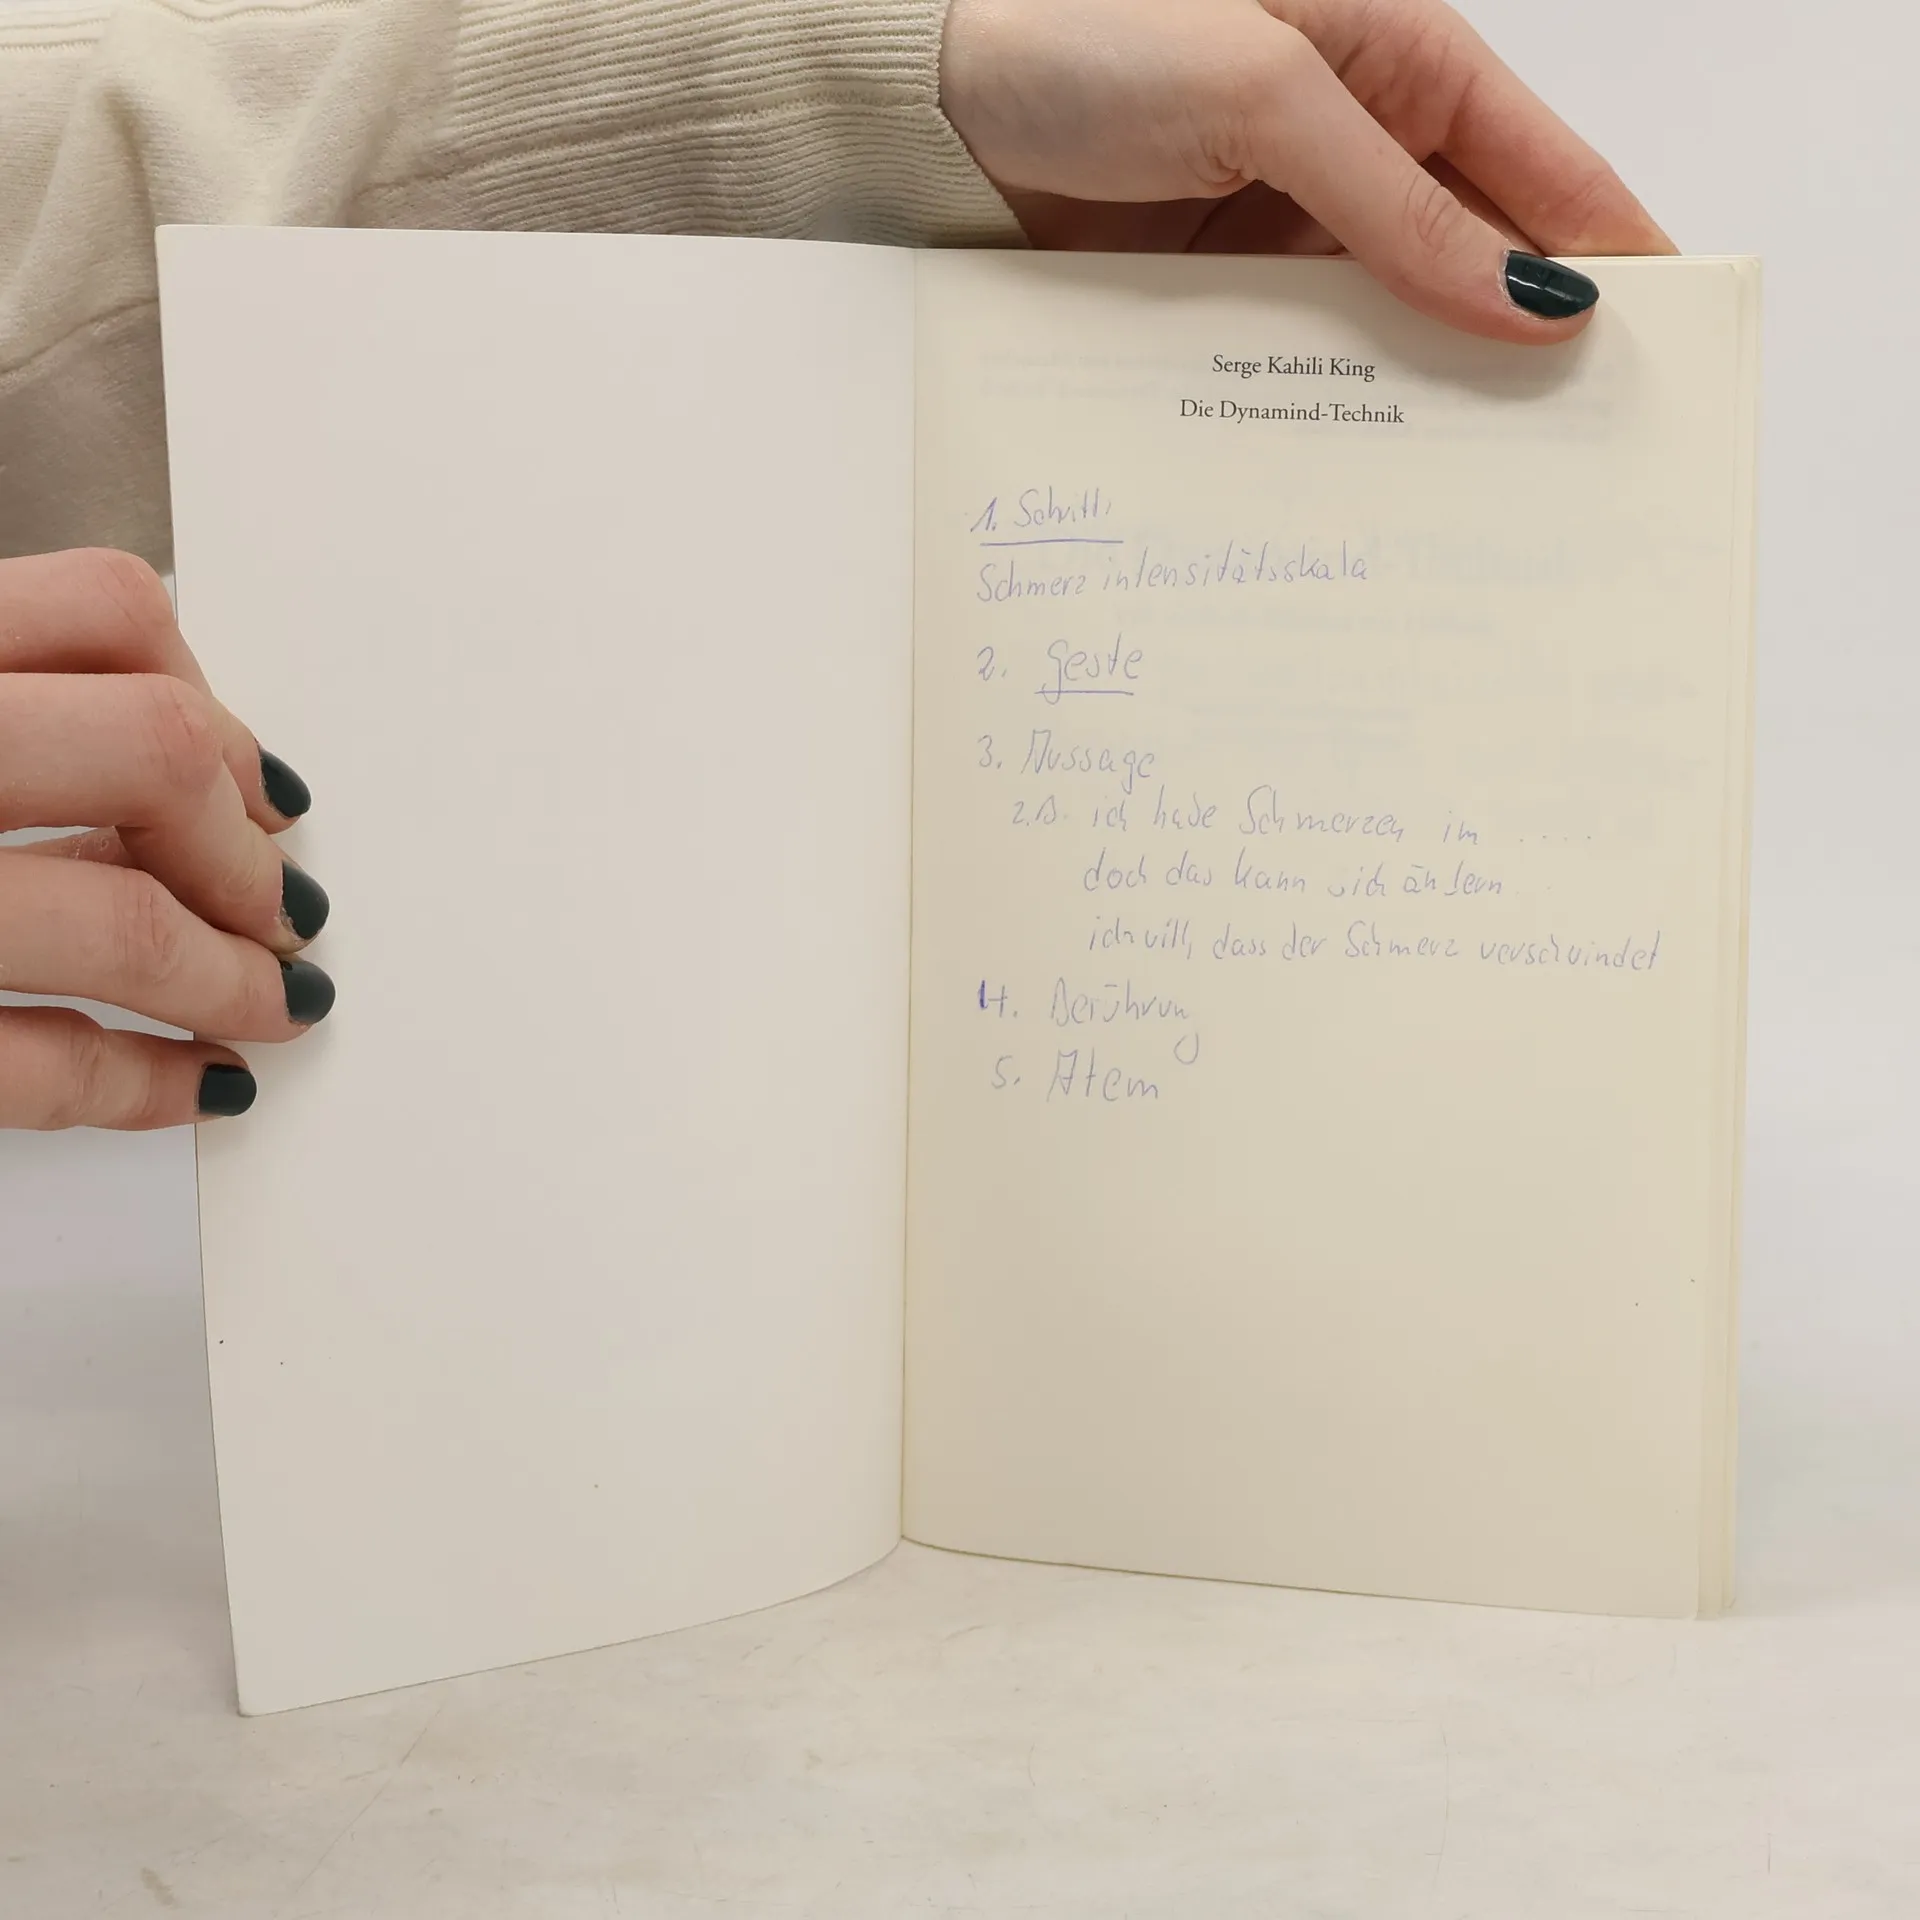 Serge Kahili King
Die Dynamind-Technik
1. Schritt:
Schmerzintensitätsskala
2. Geste
3. Aussage
z.B. ich habe Schmerzen im ....
doch das kann sich ändern ...
ich will, dass der Schmerz verschwindet
4. Berührung
5. Atem